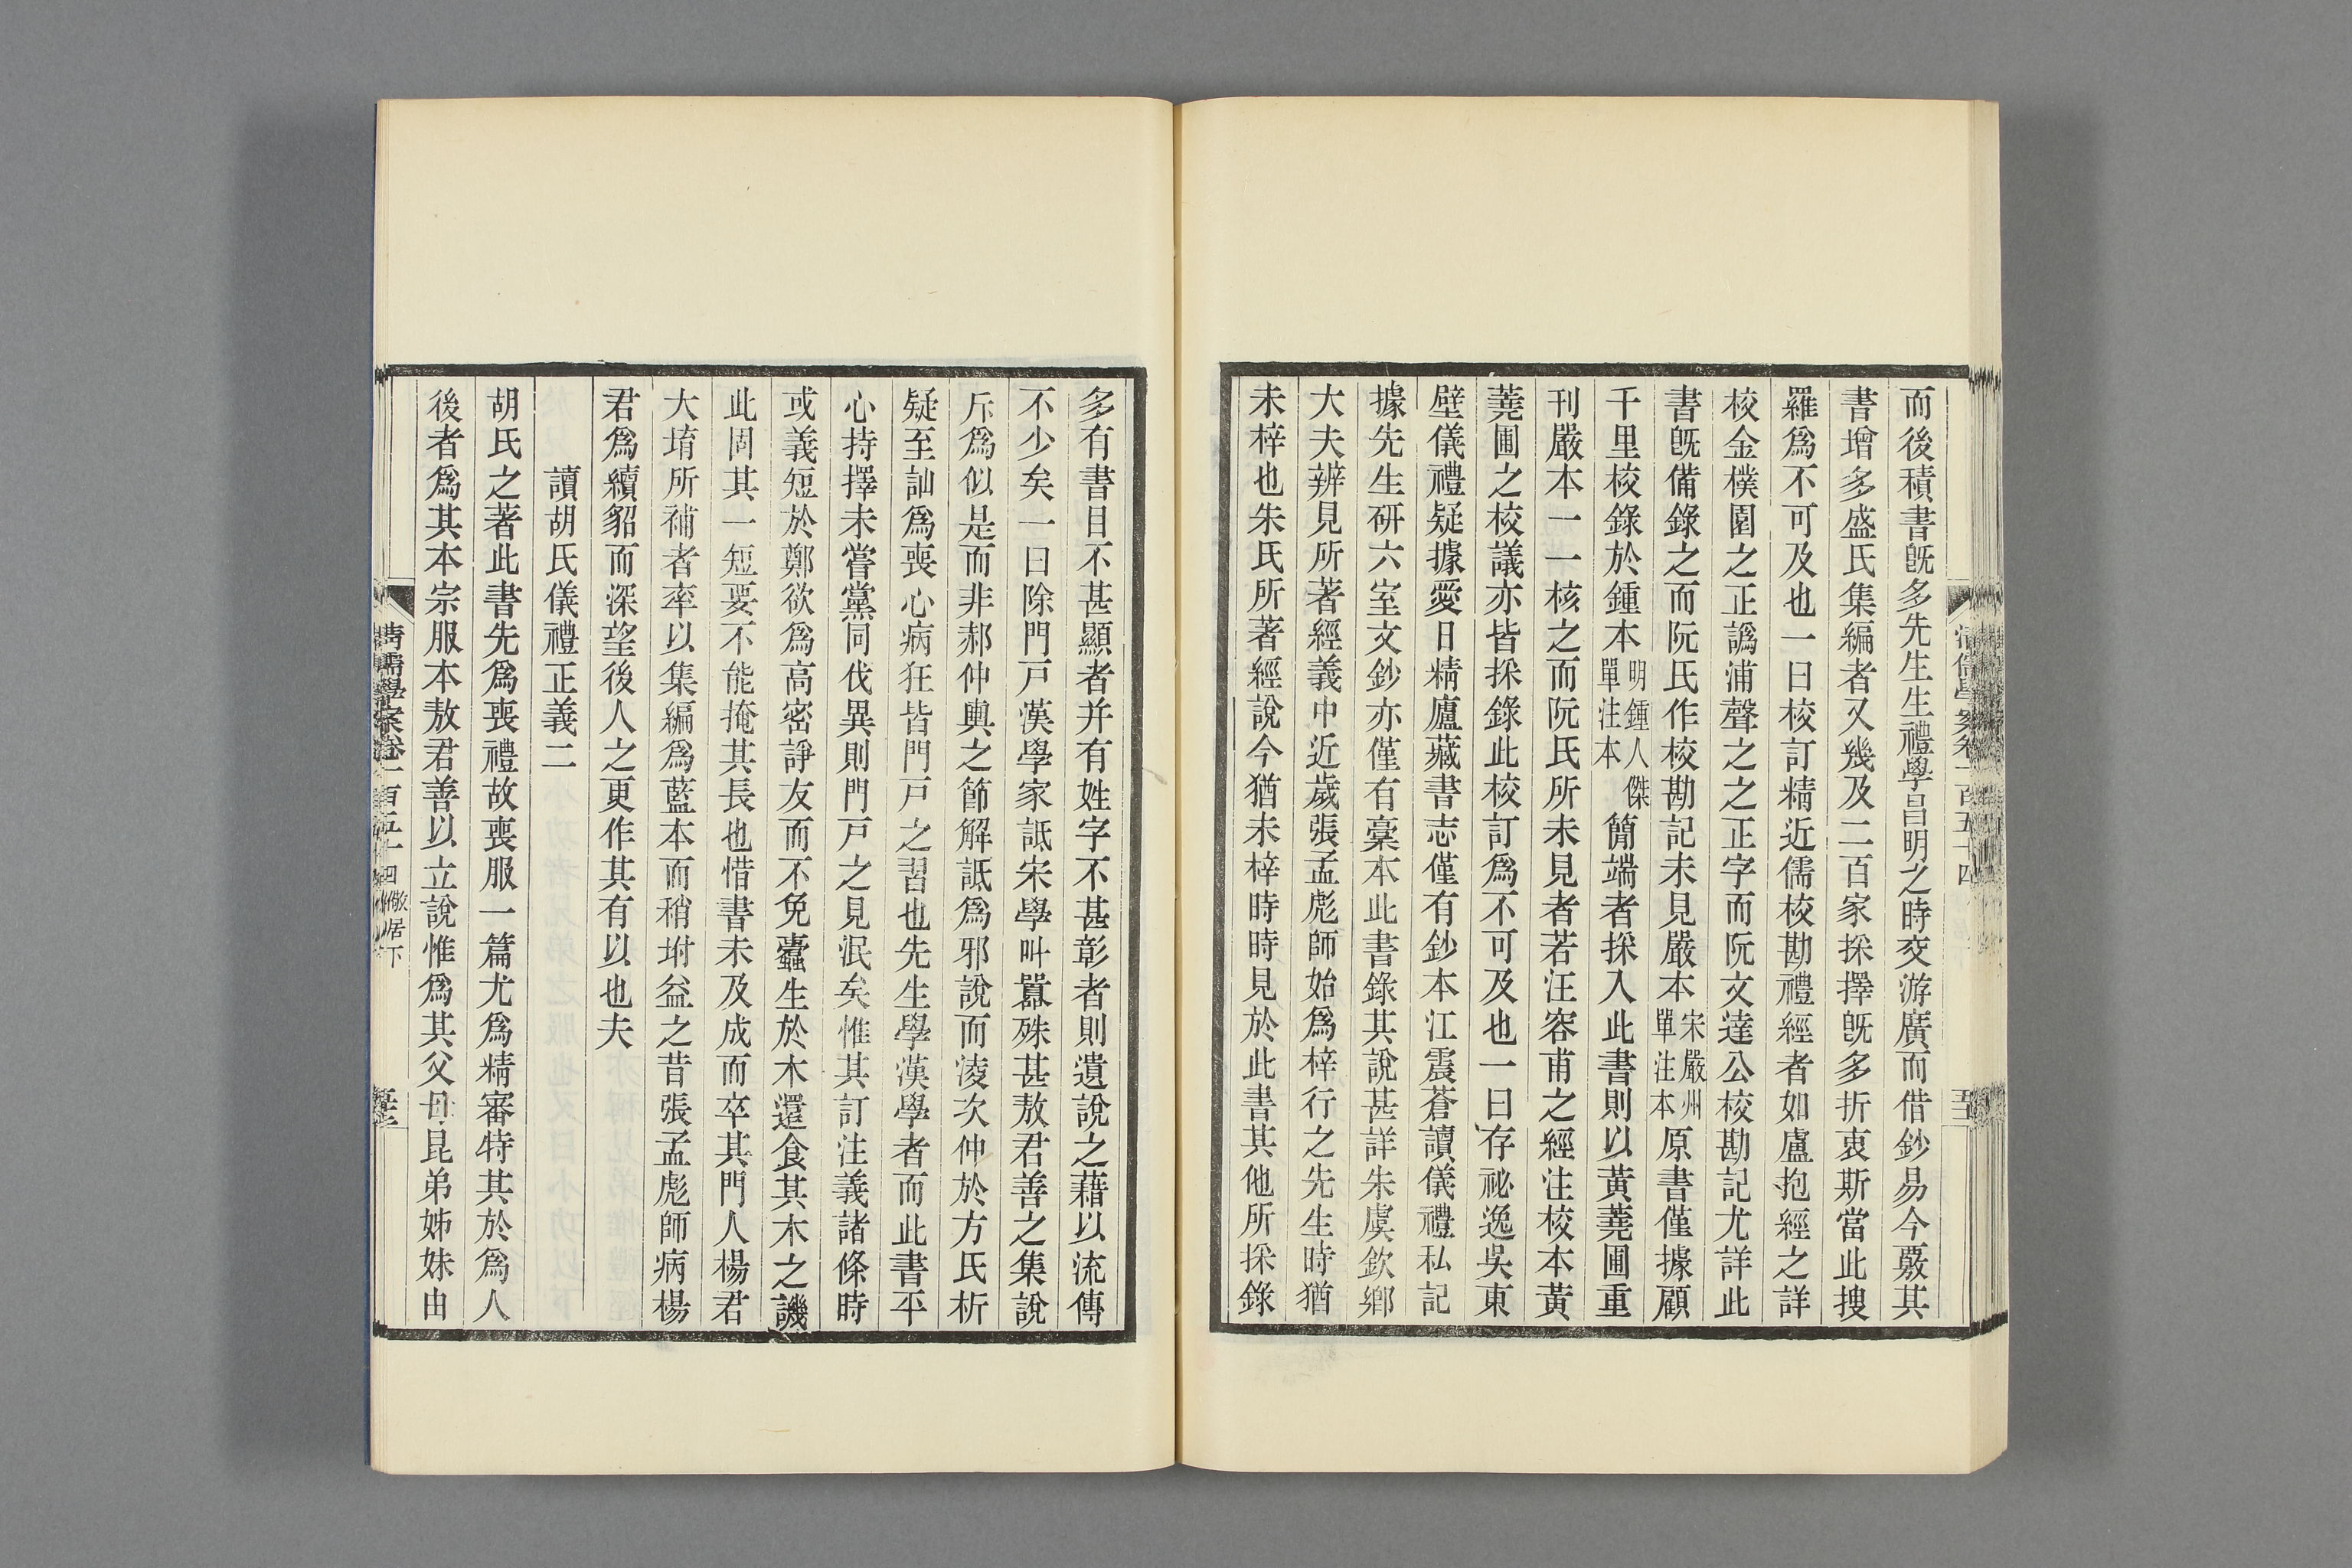 而後積書旣多先生生禮學昌明之時交游廣而借鈔易今覈其
書增多盛氏集編者又幾及二百家採擇旣多折衷斯當此搜
羅爲不可及也一曰校訂精近儒校勘禮經者如盧抱經之詳
校金樸園之正譌浦聲之之正字而阮文達公校勘記尤詳此
書旣備錄之而阮氏作校勘記未見嚴本宋嚴州單注本原書僅據顧
千里校錄於鍾本明鍾人傑單注本簡端者採入此書則以黃蕘圃重
刊嚴本一一核之而阮氏所未見者若汪容甫之經注校本黃
蕘圃之校議亦皆採錄此校訂爲不可及也一曰存祕逸吳東
壁儀禮疑據愛日精廬藏書志僅有鈔本江震蒼讀儀禮私記
據先生研六室文鈔亦僅有稾本此書錄其說甚詳朱虞欽鄉
大夫辨見所著經義中近歲張孟彪師始爲梓行之先生時猶
未梓也朱氏所著經說今猶未梓時時見於此書其他所採錄
多有書目不甚顯者并有姓字不甚彰者則遺說之藉以流傳
不少矣一曰除門戸漢學家詆宋學叫囂殊甚敖君善之集說
斥爲似是而非郝仲輿之節解詆爲邪說而淩次仲於方氏析
疑至訕爲喪心病狂皆門戸之習也先生學漢學者而此書平
心持擇未嘗黨同伐異則門戸之見泯矣惟其訂注義諸條時
或義短於鄭欲爲高密諍友而不免蠹生於木還食其木之譏
此固其一短要不能掩其長也惜書未及成而卒其門人楊君
大堉所補者率以集編爲藍本而稍坿益之昔張孟彪師病楊
君爲續貂而深望後人之更作其有以也夫
讀胡氏儀禮正義二
胡氏之著此書先爲喪禮故喪服一篇尤爲精審特其於爲人
後者爲其本宗服本敖君善以立說惟爲其父母昆弟姊妹由
清儒學案卷一百五十四 儆居下